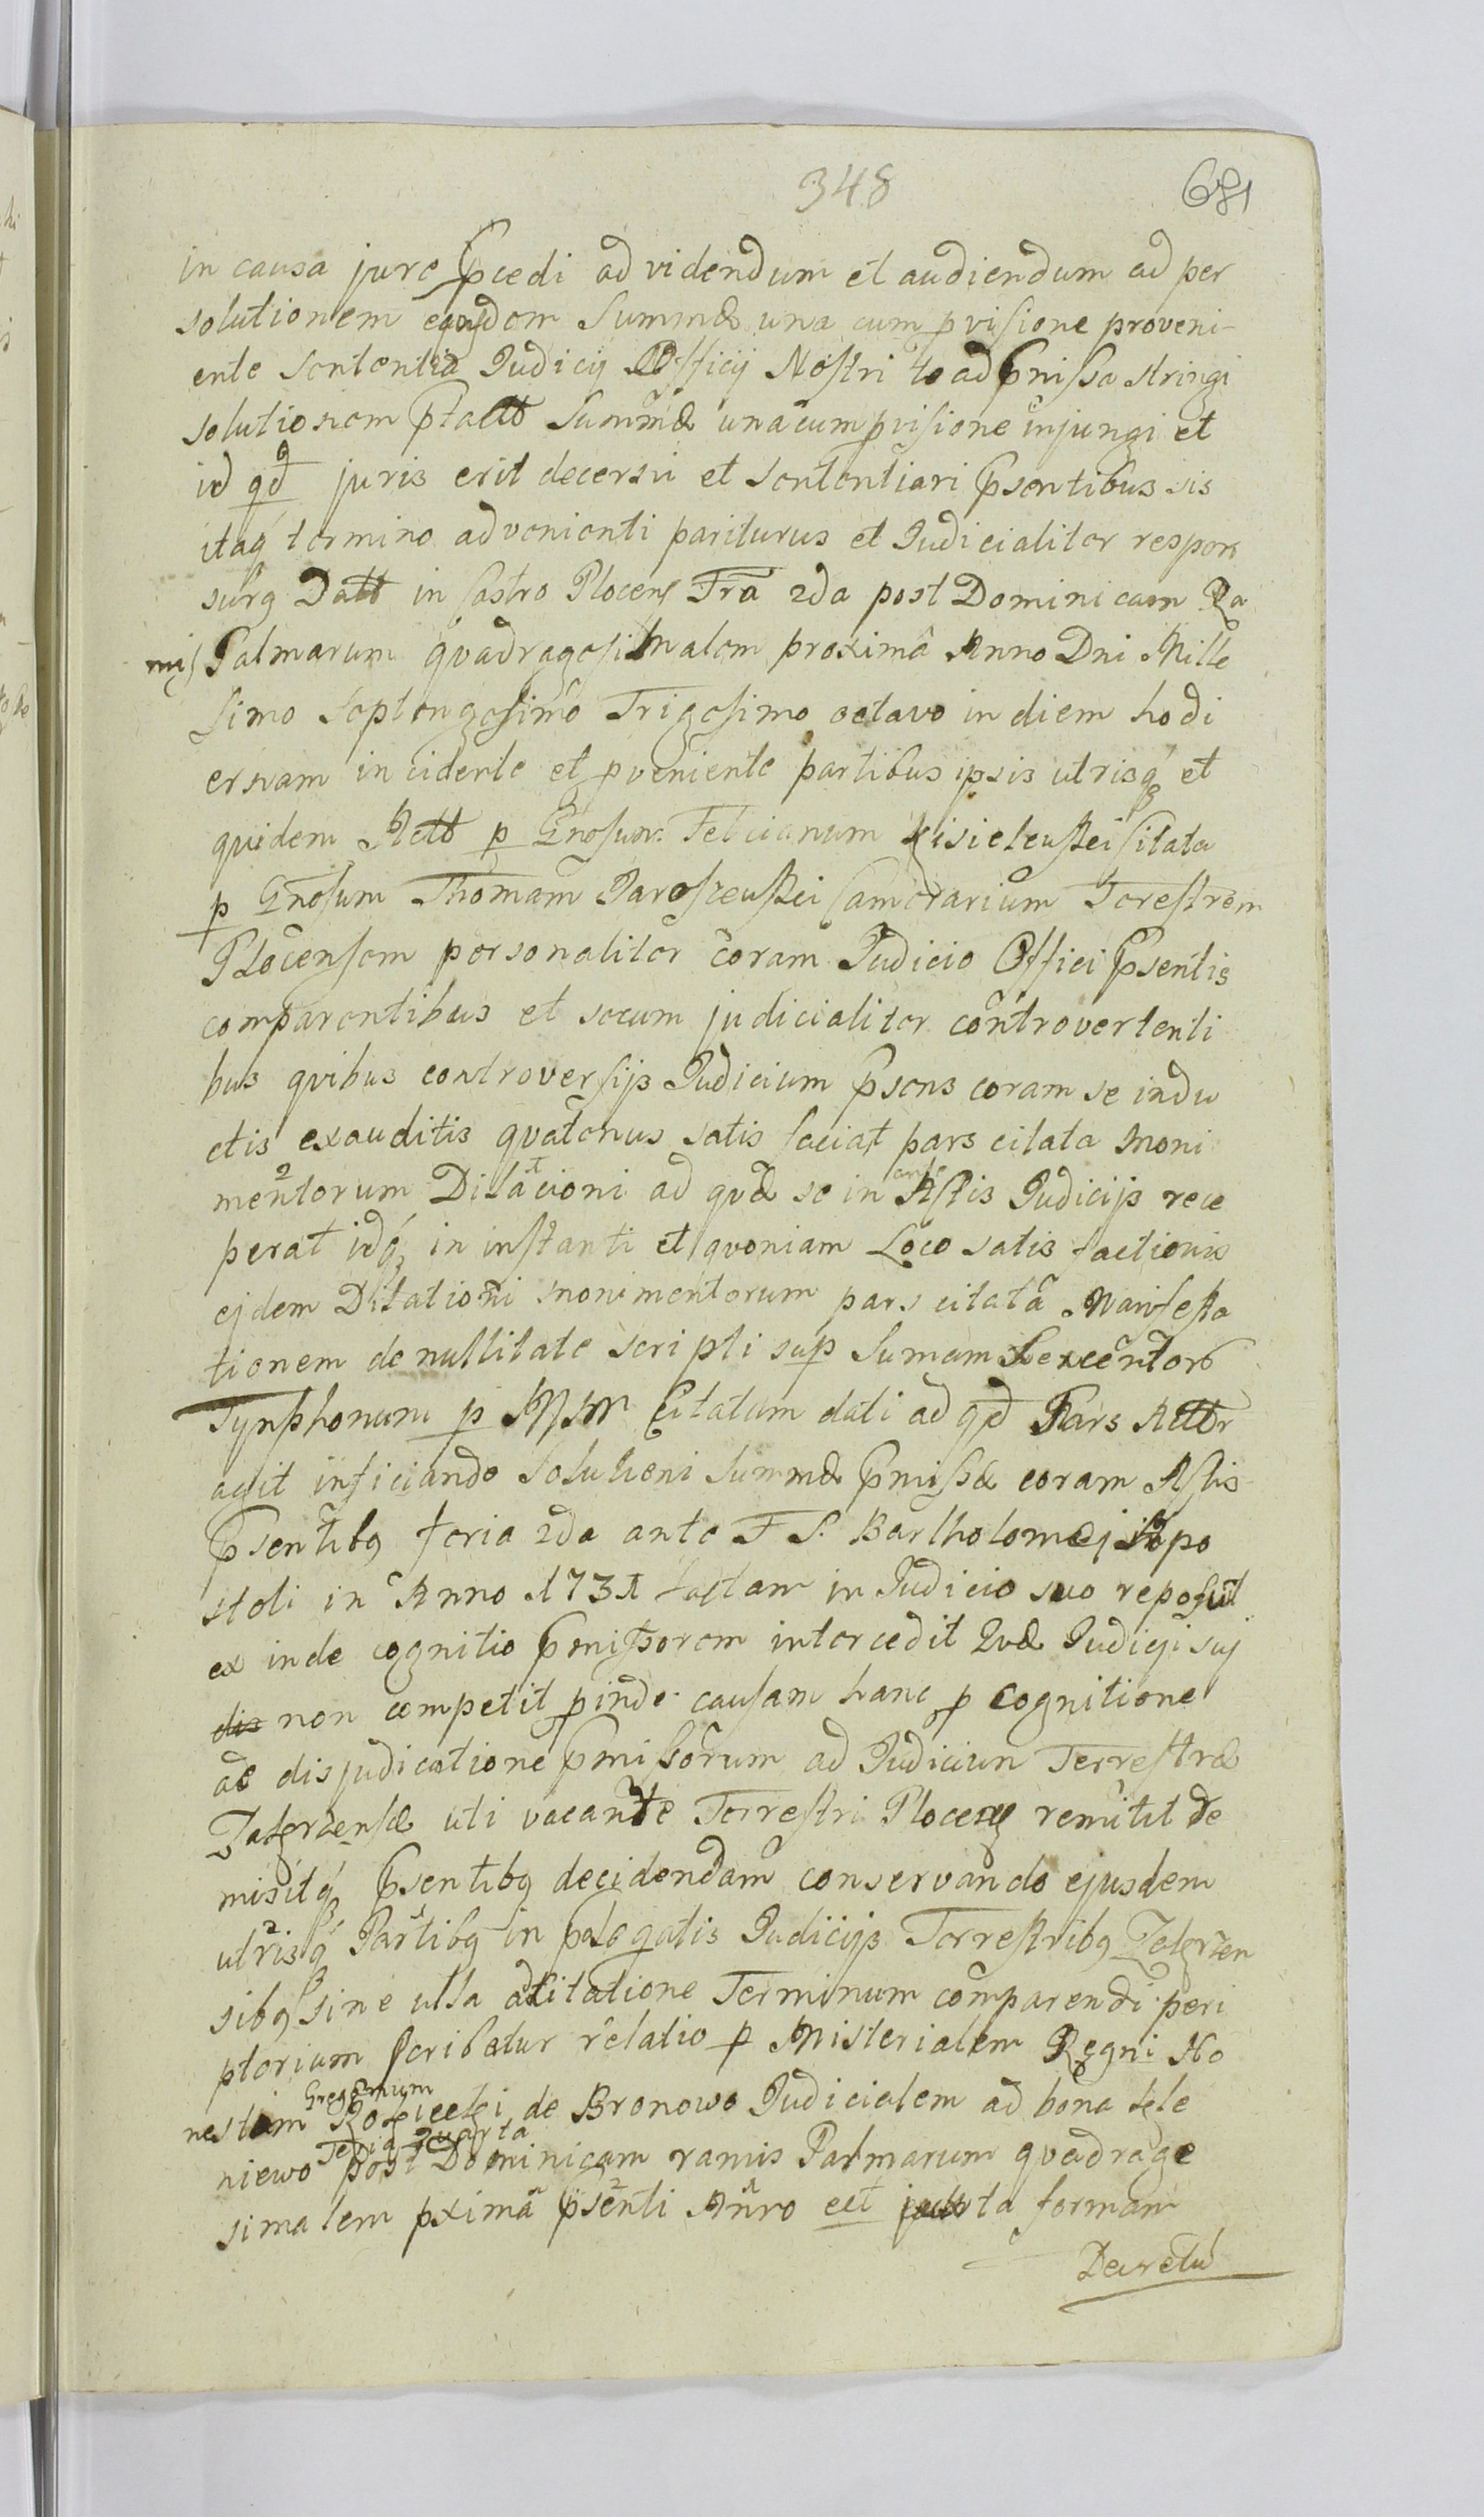 348
681
in causa jure pcedi ad videndum et audiendum ad per
solutionem ejusdem Summæ una cum pvisione proveni-
ente sententia Judicij Officij Nostri to ad pmissa stringi
solutionem ptactæ Summæ una cum pvisione injungi et
id qd juris erit decerni et sententiari psentibus sis
itaq termino advenienti pariturus et Judicialiter respon
surg Datt in Castro Plocen Fra 2da post Dominicam Ra
mis Palmarum qvadragesimalem proximâ Anno Dni Mille
simo septengesimo Trigesimo octavo in diem hodi
ernam incidente et pveniente partibus ipsis utrisq et
quidem Actt p Gnosum Felicianum Kisielewski Citata
p Gnosum Thomam Jaroszewski Camerarium Terestrem
Plocensem personaliter coram Judicio Offici psentis
comparentibus et secum judicialiter controvertenti
bus qvibus controversijs Judicium psens coram se indu
ctis exauditis qvatenus satis faciat pars citata moni
mentorum Dilationi ad qvæ se in ante Actis Judicijs rece
perat idq in instanti et qvoniam Loco satis factionis
ejdem Dilationi monimentorum pars citata Manifesta
tionem de nullitate scripti sup Sumam Sexcentor
Tynphonum p MM Citatum dati ad qd Pars Acttr
agit inficiando Solutioni Summæ pmissæ coram Actis
psentibq feria 2da ante F S. Bartholomæj Apo
stoli in Anno 1731 factam in Judicio suo reposuit
ex inde cognitio pmissorem intercedit Qvæ Judicij sui
dis non competit pinde causam hanc p cognitione
ac disjudicatione pmissorum ad Judicium Terrestræ
Zakrzensæ uti vacante Terrestri Plocen remitit de
misitq psentibq decidendam conservando ejusdem
utrisq Partibq in pælegatis Judicijs Terrestribq Zakrzen
sibq sine ulla adcitatione Terminum comparendi peri
ptorium scribatur relatio p Misterialem Regni Ho
Gregorium
nestum de Bronowo Judicialem ad bona Sele
Feria Quarta
niewo post Dominicam ramis Palmarum qvadrage
simalem pximâ psenti Anno est juxta formam
Decretû